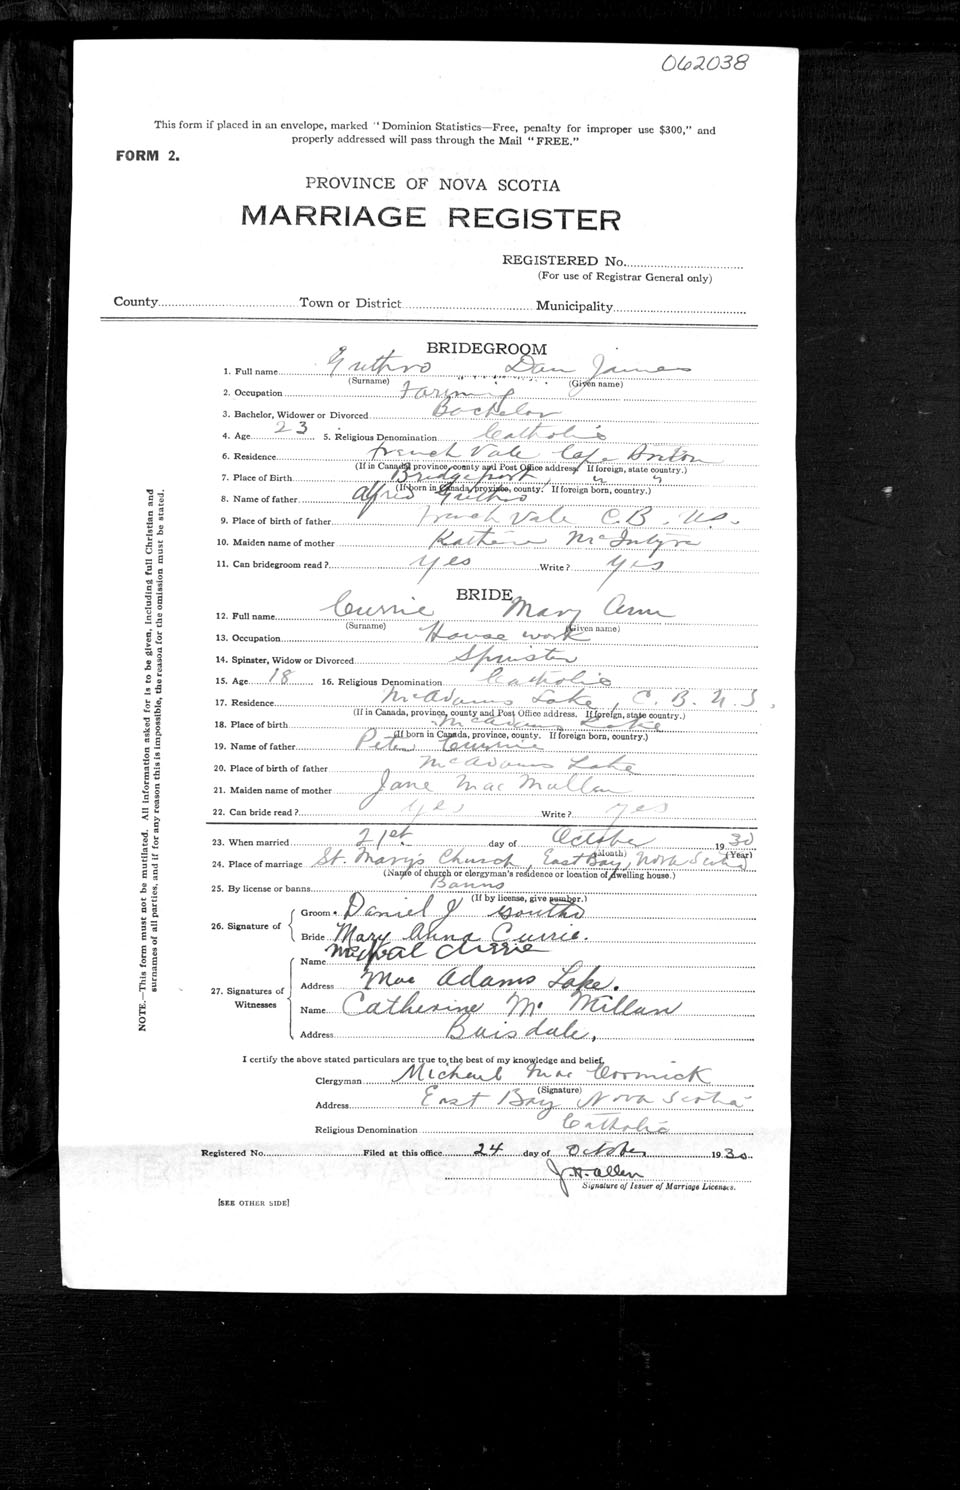 062038
This form if placed in an envelope, marked "Dominion Statistics—Free, penalty for improper use $300," and
properly addressed will pass through the Mail "FREE."
FORM 2.
PROVINCE OF NOVA SCOTIA
MARRIAGE REGISTER
REGISTERED No.
(For use of Registrar General only)
County Town or District Municipality
BRIDEGROOM
1. Full name Guthro Dan James
(Surname) (Given name)
2. Occupation Farming
3. Bachelor, Widower or Divorced Bachelor
4. Age 23 5. Religious Denomination Catholic
6. Residence French Vale Cape Breton
(If in Canada, province, county and Post Office address. If foreign, state country.)
7. Place of Birth Bridgeport, " "
(If born in Canada, province, county. If foreign born, country.)
8. Name of father Alfred Guthro
9. Place of birth of father French Vale C.B. N.S.
10. Maiden name of mother Katherine McIntyre
11. Can bridegroom read? Yes Write? Yes
BRIDE
12. Full name Currie Mary Ann
(Surname) (Given name)
13. Occupation House work
14. Spinster, Widow or Divorced Spinster
15. Age 18 16. Religious Denomination Catholic
17. Residence McAdams Lake, C. B. N. S.
(If in Canada, province, county and Post Office address. If foreign, state country.)
18. Place of birth McAdams Lake
(If born in Canada, province, county. If foreign born, country.)
19. Name of father Peter Currie
20. Place of birth of father McAdams Lake
21. Maiden name of mother Jane MacMullan
22. Can bride read? yes Write? yes
23. When married 21st. day of October 1930
(Month) (Year)
24. Place of marriage St. Mary's Church, East Bay, Nova Scotia
(Name of church or clergyman's residence or location of dwelling house.)
25. By license or banns Banns
(If by license, give number.)
26. Signature of
Groom Daniel J Gouthro
Bride Mary Anna Currie.
27. Signatures of Witnesses
Name Currie
Address Mac Adams Lake.
Name Catherine Mc Millan
Address Boisdale,
I certify the above stated particulars are true to the best of my knowledge and belief,
Clergyman Micheal MacCormick
(Signature)
Address East Bay Nova Scotia
Religious Denomination Catholic
Registered No. Filed at this office 24 day of October 1930.
J. H. Allen
Signature of Issuer of Marriage Licenses.
[SEE OTHER SIDE]
NOTE.—This form must not be mutilated. All information asked for is to be given, including full Christian and
surnames of all parties, and if for any reason this is impossible, the reason for the omission must be stated.